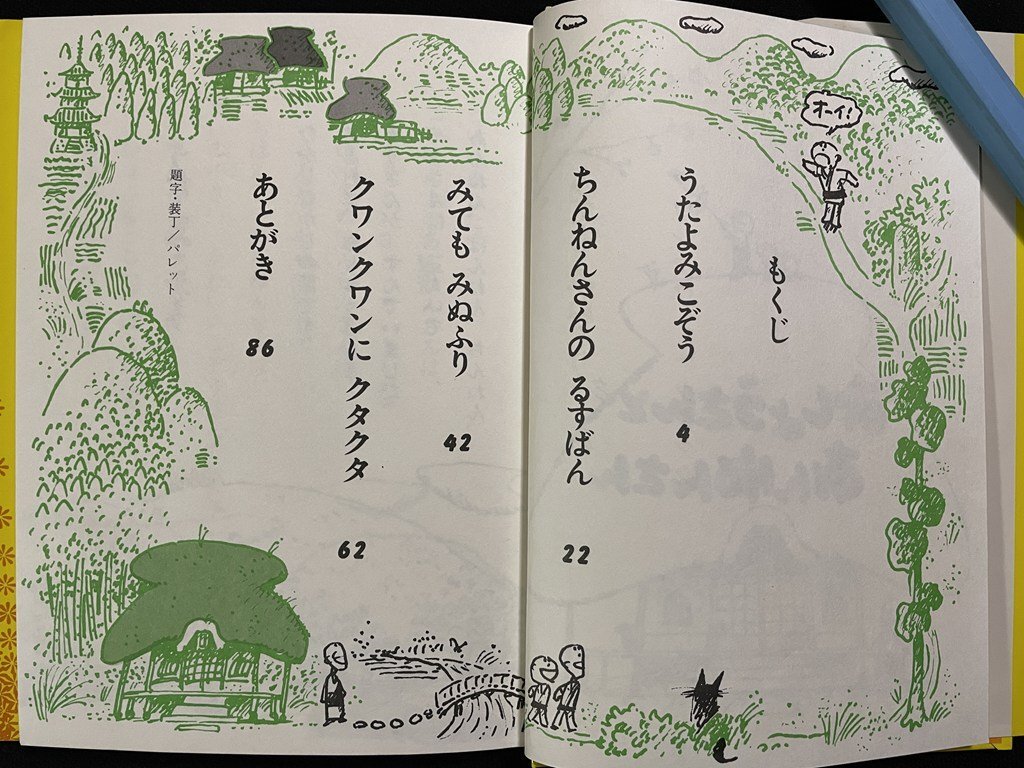 オーイ!
もくじ
うたよみこぞう 4
ちんねんさんの るすばん 22
みても みぬふり 42
クワンクワンに クタクタ 62
あとがき 86
題字・装丁/パレット